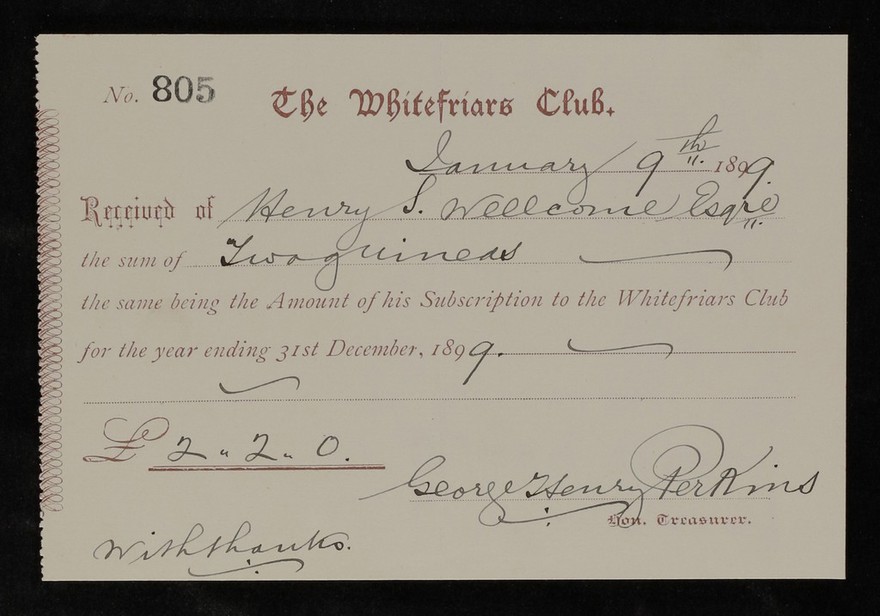 No. 805
The Whitefriars Club.
January 9th 1899.
Received of Henry S. Wellcome Esqre
the sum of Two guineas
the same being the Amount of his Subscription to the Whitefriars Club
for the year ending 31st December, 1899.
£ 2 " 2 " 0.
George Henry Perkins
Hon. Treasurer.
With thanks.